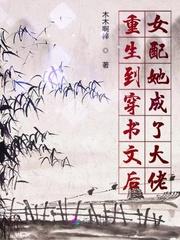 重生到穿书文后
女配她成了大佬
木木啊
著